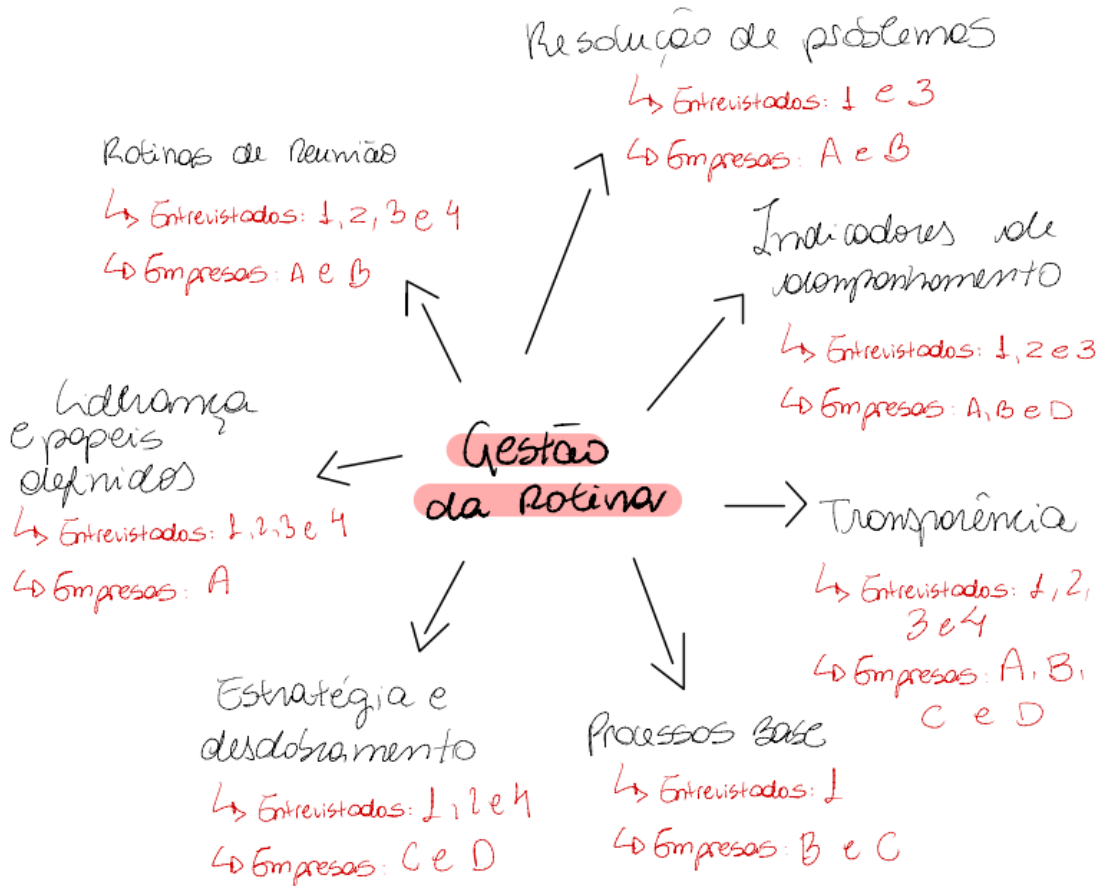 Resolução de problemas
↳ Entrevistados: 1 e 3
↳ Empresas: A e B
Rotinas de Reunião
↳ Entrevistados: 1, 2, 3 e 4
↳ Empresas: A e B
Indicadores de
acompanhamento
↳ Entrevistados: 1, 2 e 3
↳ Empresas: A, B e D
Liderança
e papeis
definidos
↳ Entrevistados: 1, 2, 3 e 4
↳ Empresas: A
Gestão
da Rotina
Transparência
↳ Entrevistados: 1, 2,
3 e 4
↳ Empresas: A, B,
C e D
Estratégia e
desdobramento
↳ Entrevistados: 1, 2 e 4
↳ Empresas: C e D
Processos Base
↳ Entrevistados: 1
↳ Empresas: B e C